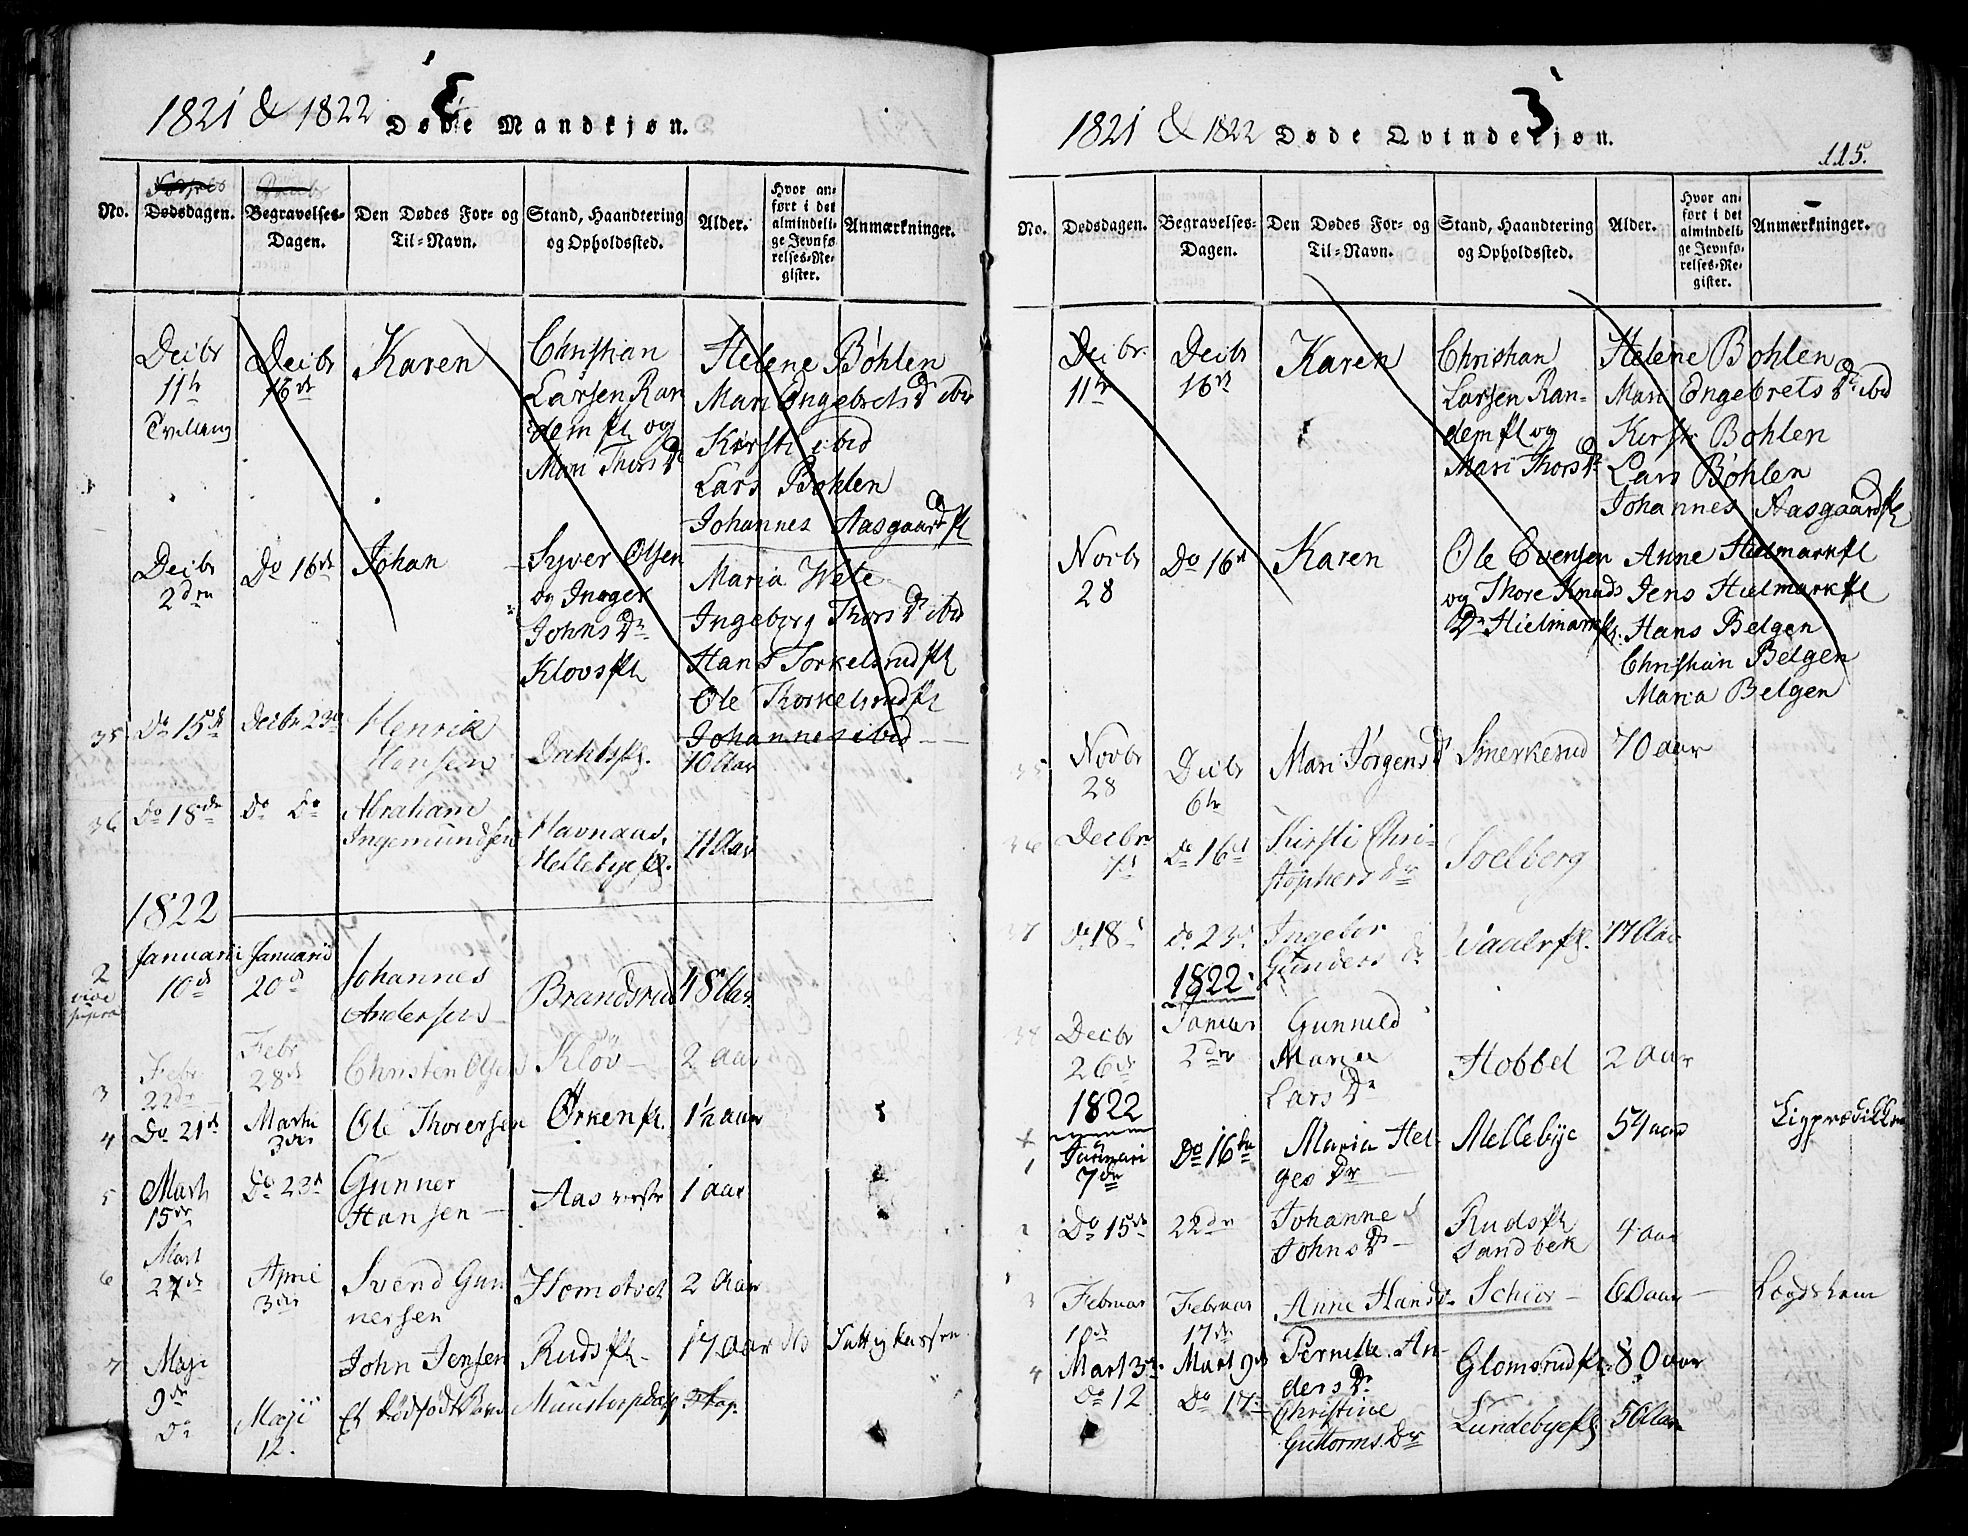 1821 & 1822
Døde Mandkjøn.
No.
Dødsdagen.
Begravelses-
Dagen.
Den Dødes For- og
Til-Navn.
Stand, Haandtering
og Opholdssted.
Alder.
Hvor an-
ført i det
almindeli-
ge Jevnfø-
relses-Re-
gister.
Anmærkninger.
Decbr
11te
Tvilling
Decbr
16de
Karen
Christian
Larsen Ran
dem fl og
Mari Thors Dr
Helene Bøhlen
Mari Engebrets Dr ibid
Kirsti ibid
Lars Bøhlen
Johannes Aasgaard fl
Decbr
2den
Do 16de
Johan
Syver Olsen
og Inger
Johns Dr
Klovsfl
Maria Wete
Ingeborg Thors Dr ibid
Hans Torkelsrud fl
Ole Thorkelsrud fl
Johannes ibid
35
Do 15de
Decbr 23de
Henrik
Hansen
10 Aar
36
Do 18de
Do Do
Abraham
Ingemundsen
Havnaas,
Mellebye fl.
71 Aar
1822
2
vide
supra
Januarii
10de
Januarii
20de
Johannes
Andersen
Brandsrud
48 Aar
3
Febr
22de
Febr
28de
Christen Olsen
Kløv
2 aar
4
Do 21de
Martii
3die
Ole Thoresen
Ørken fl.
1½ aar
5
Marti
15de
Do 23de
Gunner
Hansen
Aas vestre
1 aar
6
Mart
27de
April
3die
Svend Gun
nersen
Homotvet
2 Aar
7
Maji
9de
John Jensen
Ruds fl
17 Aar
No
Fattigkassen
Do
Maji
12.
Et dødfødt Barn
1821 & 1822
Døde Qvindekjøn.
115.
No.
Dødsdagen.
Begravelses-
Dagen.
Den Dødes For- og
Til-Navn.
Stand, Haandtering
og Opholdssted.
Alder.
Hvor an-
ført i det
almindeli-
ge Jevnfø-
relses-Re-
gister.
Anmærkninger.
Decbr.
11te
Decbr
16de
Karen
Christian
Larsen Ran-
dem fl og
Mari Thors Dr
Helene Bohlen
Mari Engebrets Dr ibid
Kirsti Bohlen
Lars Bøhlen
Johannes Aasgaard fl
Novbr
28
Do 16de
Karen
Ole Evensen
og Thore Knuds
Dr Hielmark fl.
Anne Hielmark fl
Jens Hielmark fl
Hans Belgen
Christian Belgen
Maria Belgen
35
Novbr
28
Decbr
6te
Mari Jørgens Dr
Smerkerud
70 aar
36
Decbr
7de
Do 16de
Kirsti Chri-
stophers Dr
Soelberg
37
Do 18de
Do 23de
Ingebor
Gunders Dr
Vaaler fl.
77 Aar
1822
38
Decbr
26de
Januar
2den
Gunnild
Maria
Lars Dr
Hobbel
2 Aar
1822
1
Januari
7de
Do 16de
Maria Hel-
ges Dr
Mellebye
54 aar
Ligprædiken
2
Do 15de
22de
Johanne
Johns Dr
Ruds fl
Sandbek
4 aar
3
Februar
10de
Februar
17de
Anne Hans Dr
Schiør
60 aar
Lægdslem
4
Mart 3die
Mart 9de
Pernille An-
ders Dr
Glomsrud fl.
80 aar
Do 12
Do 17de
Christine
Guttorms Dr
Lundebye fl.
50 Aar